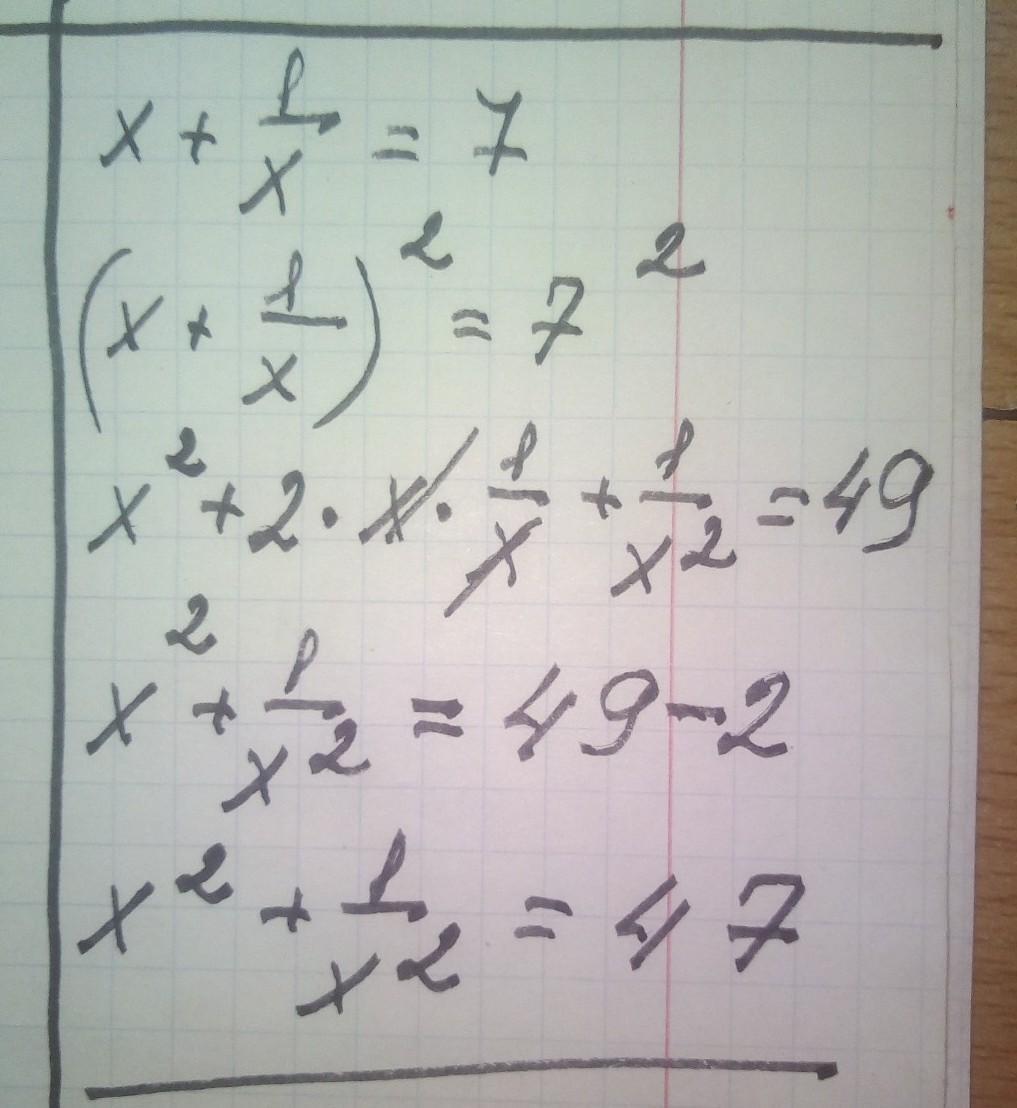 x + 1/x = 7
(x + 1/x)² = 7²
x² + 2 · x · 1/x + 1/x² = 49
x² + 1/x² = 49 - 2
x² + 1/x² = 47